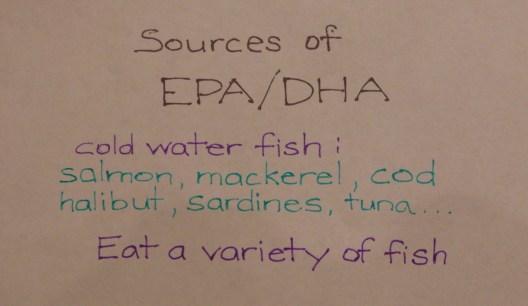 Sources of
EPA/DHA
cold water fish:
salmon, mackerel, cod
halibut, sardines, tuna...
Eat a variety of fish